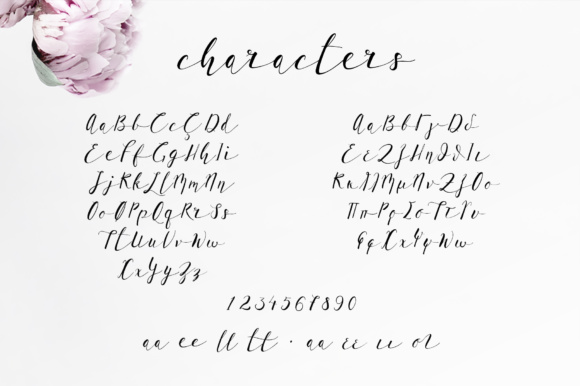 characters
AaBbCcÇDd
EeFfGgHhIi
JjKkLlMmNn
OoØPpQqRrSs
TtUuVvWw
XxYyZz
ΑαΒβΓγΔδ
ΕεΖζΗηΘθΙι
ΚκΛλΜμΝνΞξΟο
ΠπΡρΣσΤτΥυ
ΦφΧχΨψΩω
1234567890
aa ee ll tt · αα εε ιι οι